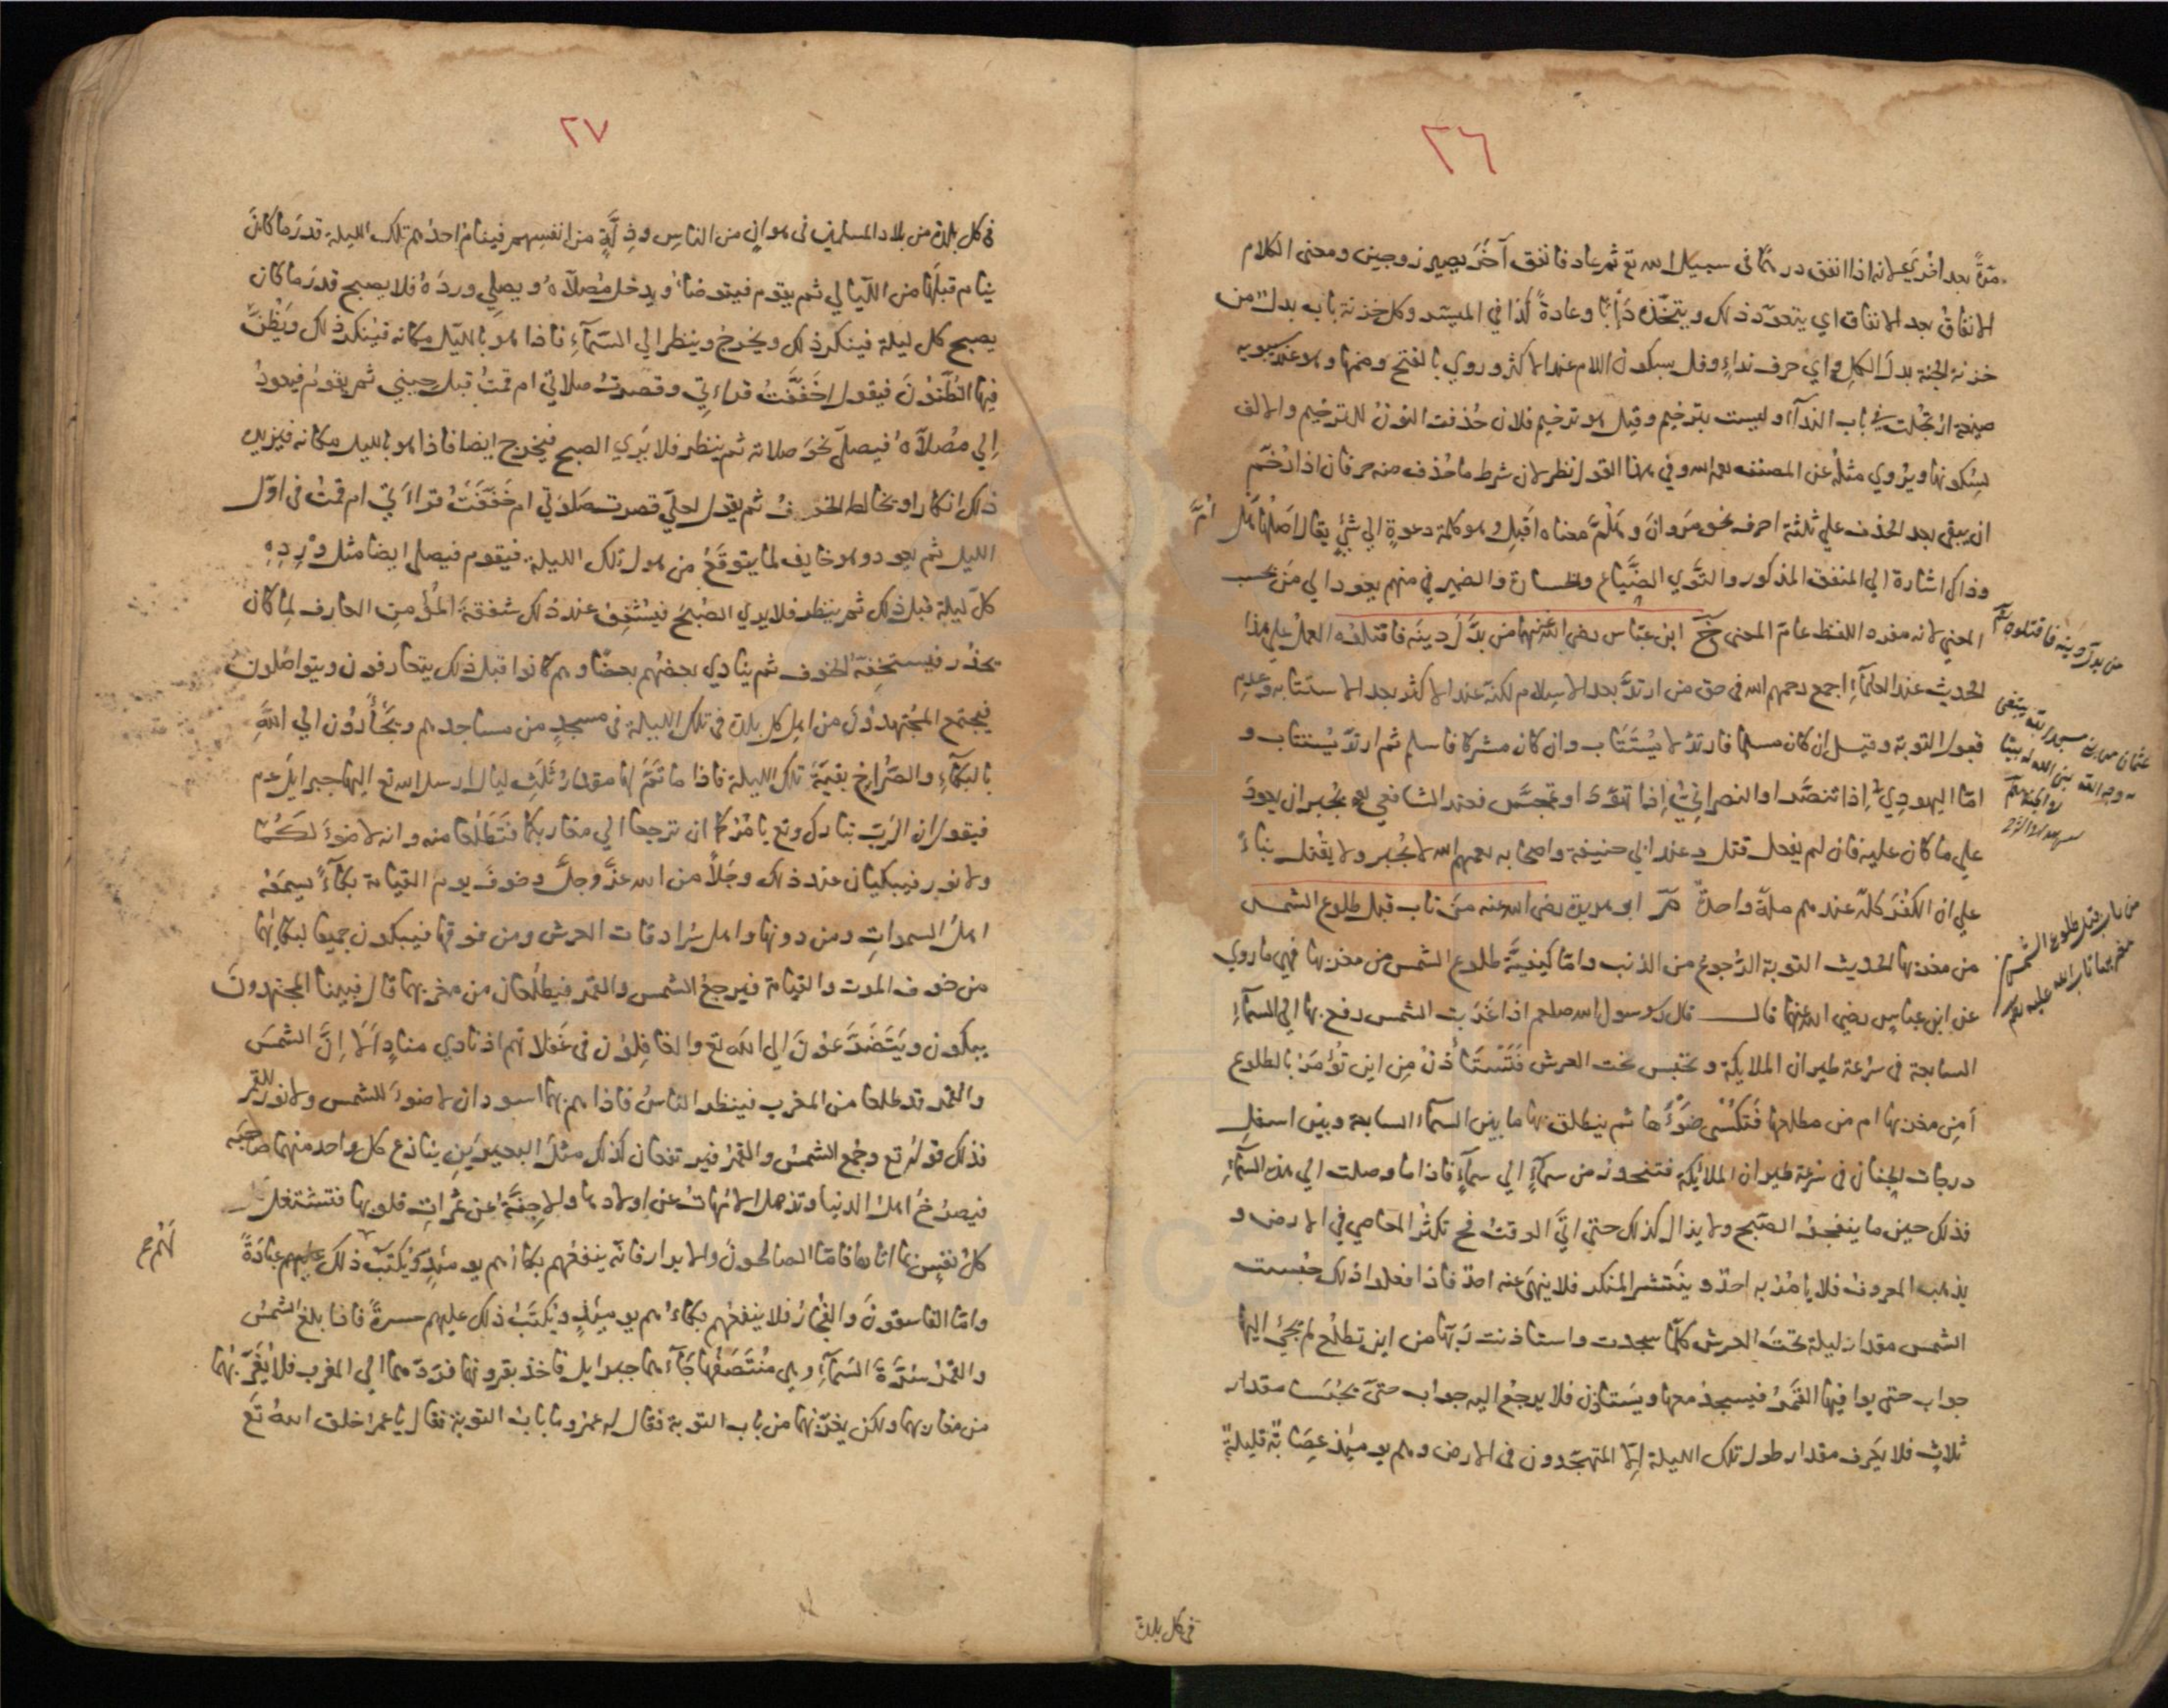 ٣٦
مرّةً بعد اخرى لانه اذا انفق درهمًا في سبيل الله تع ثم عاد فانفق آخَرَ يصير زوجين ومعنى الكلام
الانفاقُ بعد الانفاق اي يتعوّد ذلك ويتخّذه دَأبًا وعادةً كذا في الميسّر وكل خزنة باب بدلٌ من
خزنة الجنة بدلَ الكلِ واي حرف نداءٍ وفل بسكون اللام عند الاكثر وروي بالفتح وضمها وهو عند سيبويه
صيغة ارتجلت في باب الندآ وليست بترخيم وقيل هو ترخيم فلان حُذفت النونُ للترخيم والالف
لسُكونها ويُروي مثلهُ عن المصنف رحمه الله وفي هذا القول نظر لان شرط ما حُذف منه حرفان اذا رُخّم
ان يبقى بعد الحذف علي ثلثة احرف نحو مَروانَ وهَلُمَّ معناه اَقبِل وهو كلمة دعوةٍ الي شيئٍ يقال اَصلُها هل اُمّ
وذاك اشارة الي المنفق المذكور والتَّوي الضَّيَاع والخسارة والضمير في منهم يعود الي مَن بحسب
المعني لانه مفرد اللفظ عامّ المعنى خ ابن عبّاس رضي الله عنهما من بدَّلَ دينَه فاقتلوُه العملُ علي هذا
الحديث عند العلمآءِ اجمع رحمهم الله في حق من ارتدَّ بعد الاسلام لكنّه عند الاكثر بعد الاستتابه وعدم
قبول التوبة وقيل ان كان مسلما فارتدّ لا يُستَتَاب وان كان مشركا فاسلم ثم ارتدّ يُستتاب و
امّا اليهودي اِذا تنصَّر او النصراني اِذا تهوّدَ او تمجّسَ فعند الشافعي رحمه يُجبر ان يعودَ
علي ما كان عليه فان لم يفعل قتل وعند ابي حنيفة واصحابه رحمهم الله لا يُجبر ولا يقُتل بناءً
علي ان الكفرَ كلّه عندهم ملة واحدةٌ مّ ابو هريرة رضي الله عنه مَن تاب قبل طلوع الشمس
من مغربها الحديث التوبة الرُّجوعُ من الذنب وامّا كيفيّة طلوع الشمس من مغربها فهي ما روي
عن ابن عباس رضي الله عنهما قال قال رسول الله صلعم اذا غَرَبت الشمس رفع بها الي السمآءِ
السابعة في سُرعة طيران الملايكة وتحتبس تحت العرش فَتَستَأذنُ مِن اين تُؤمَرُ بالطلوع
اَمِن مغربها ام من مطلعها فَتُكسٰي ضَوءُها ثم ينطلق بها ما بين السمآء السابعة وبين اسفلِ
درجات الجنان في سُرعة طيران الملائكة فتنحدر من سمآءٍ الي سمآءٍ فاذا ما وصلت الي هذه السمآءِ
فذلك حين ما ينفجر الصبح ولا يزال كذلك حتي اتيَ الوقتُ فح تكثرُ المعاصي في الارض و
يذهب المعروف فلا يامُرُ به احدٌ وينتشر المنكر فلا ينهىَ عنه احدٌ فاذا فعلوا ذلك حُبست
الشمس مقدار ليلة تحتَ العرش كلمّا سجدت واستاذنت رَبّهَا من اين تطلُع لم يجئ اليها
جواب حتي يوافيها القمرُ فيسجد معها ويستاذن فلا يرجع اليه جواب حتّى يحُبسا مقدار
ثلاثٍ فلا يَعرف مقدار طول تلك الليلة اِلاّ المتهجّدون في الارض وهم يومئذ عِصَابةٌ قليلةٌ
من بدّل دينه فاقتلوه
من تاب قبل طلوع الشمس من
مغربها تاب الله عليه
في كل بلدة
٣٧
في كل بلدة من بلاد المسلمين في هوانٍ من الناسِ وذِلّةٍ من انفسِهم فينام احدُهم تلك الليلة قدرَ ما كانَ
ينام قبلَها من اللّيالي ثم يقوم فيتوضاُ ويدخل مُصَلاّهُ ويصلِي وردَهُ فلا يصبح قدرَ ما كان
يصبح كل ليلة فينكر ذلك ويخرجُ وينظر الي السَمآءِ فاذا هو بالليل مكانه فينكر ذلك ويَظُنّ
فيها الظنُونَ فيقول اَخَفّفتُ قراءتي وقصرتُ صلاتي ام قمتُ قبل حِيني ثم يقومُ فيعودُ
اِلي مصُلاّهُ فيصلّي نحوَ صلاته ثم ينظر فلا يَري الصبح فيخرج ايضا فاذا هو بالليل مكانه فيزيده
ذلك انكارا ويخالطه الخوفُ ثم يقول لعلّي قصرت صَلوتي ام خَفّفَتُ قراءتي ام قمتُ في اوّل
الليل ثم يعود وهو خايف لما يتوقّعُ من هول تلك الليلة فيقوم فيصلي ايضا مثل وِردِهِ
كلَّ ليلة قبل ذلك ثم ينظر فلا يري الصُبحَ فيشُفِق عند ذلك شفقةَ المُؤمِنِ العارف لِما كان
يحذر فيستخفّه الخوف ثم ينادي بعضُهم بعضًا وهم كانوا قبل ذلك يتعارفون ويتواصلون
فيجتمع المجُتهدوُنَ من اهل كل بلدة في تلك الليلة في مسجدٍ من مساجدهم ويَجأَرُون الي اللهِ
بالبكآءِ والصّراخ بقيّةَ تلك الليلة فاذا ما تَمَّ لهما مقدارُ ثَلٰثِ ليال ارسل الله تع اليهما جبرايلَ عم
فيقول ان الرّبَ تبارك وتع يامُرُكما ان ترجعا الي مغاربكما فتَطلُعا منه وانه لا ضوءَ لكُما
ولا نور فيبكيان عند ذلك وجَلاً من الله عزّ وجلّ وخوفَ يوم القيامة بكآءً يسمعَه
اهلُ السموات ومن دونها واهل سُرادقات العرش ومن فوقها فيبكون جميعا لبكائِهما
من خوف الموت والقيامة فيرجعُ الشمس والقمر فيطلُعان من مغربهما قال فبينا المجتهدونَ
يبكون ويَتَضَرَّعوُنَ الي الله تع والغافِلوُن في غَفلاتهم اذ نادي منادٍ اَلاَ اِنَّ الشمسَ
والقمرَ قد طلعا من المغرب فينظر الناسُ فاذا هم بهما اسودان لا ضوءَ للشمس ولا نور للقمر
فذلك قوله تع وجُمعَ الشمسُ والقمرُ فيرتفعان كذلك مثلَ البعيرَينِ ينازع كل واحد منهما صاحبَه
فيصرُخُ اهلُ الدنيا وتذهل الامّهاتُ عن اولادها والاجِنّةُ عن ثمرَاتِ قلوبها فتشتغل
كلُ نفس بما اتاها فامّا الصالحونَ والابرار فانّه ينفعُهم بكاؤهم يومئِذٍ ويُكتَبُ ذلك لهم عبادَةً
وامّا الفاسقونَ والفُجّارُ فلا ينفعُهم بكاءُهم يومئِذٍ ويُكتَبُ ذلك عليهم حسرةً فاذا بلغ الشمسُ
والقمرُ سُرّةَ السَمآءِ وهي مُنتَصَفُها جَآءَهما جبرايل فاخذ بقرونها فردّهما الي المغرب فلا يُغرّبهُما
من مغاربهما ولكن يغرّبهُما من باب التوبة فقال له عمرُ وما بابُ التوبة فقال يا عمرُ خلق اللهُ تعَ